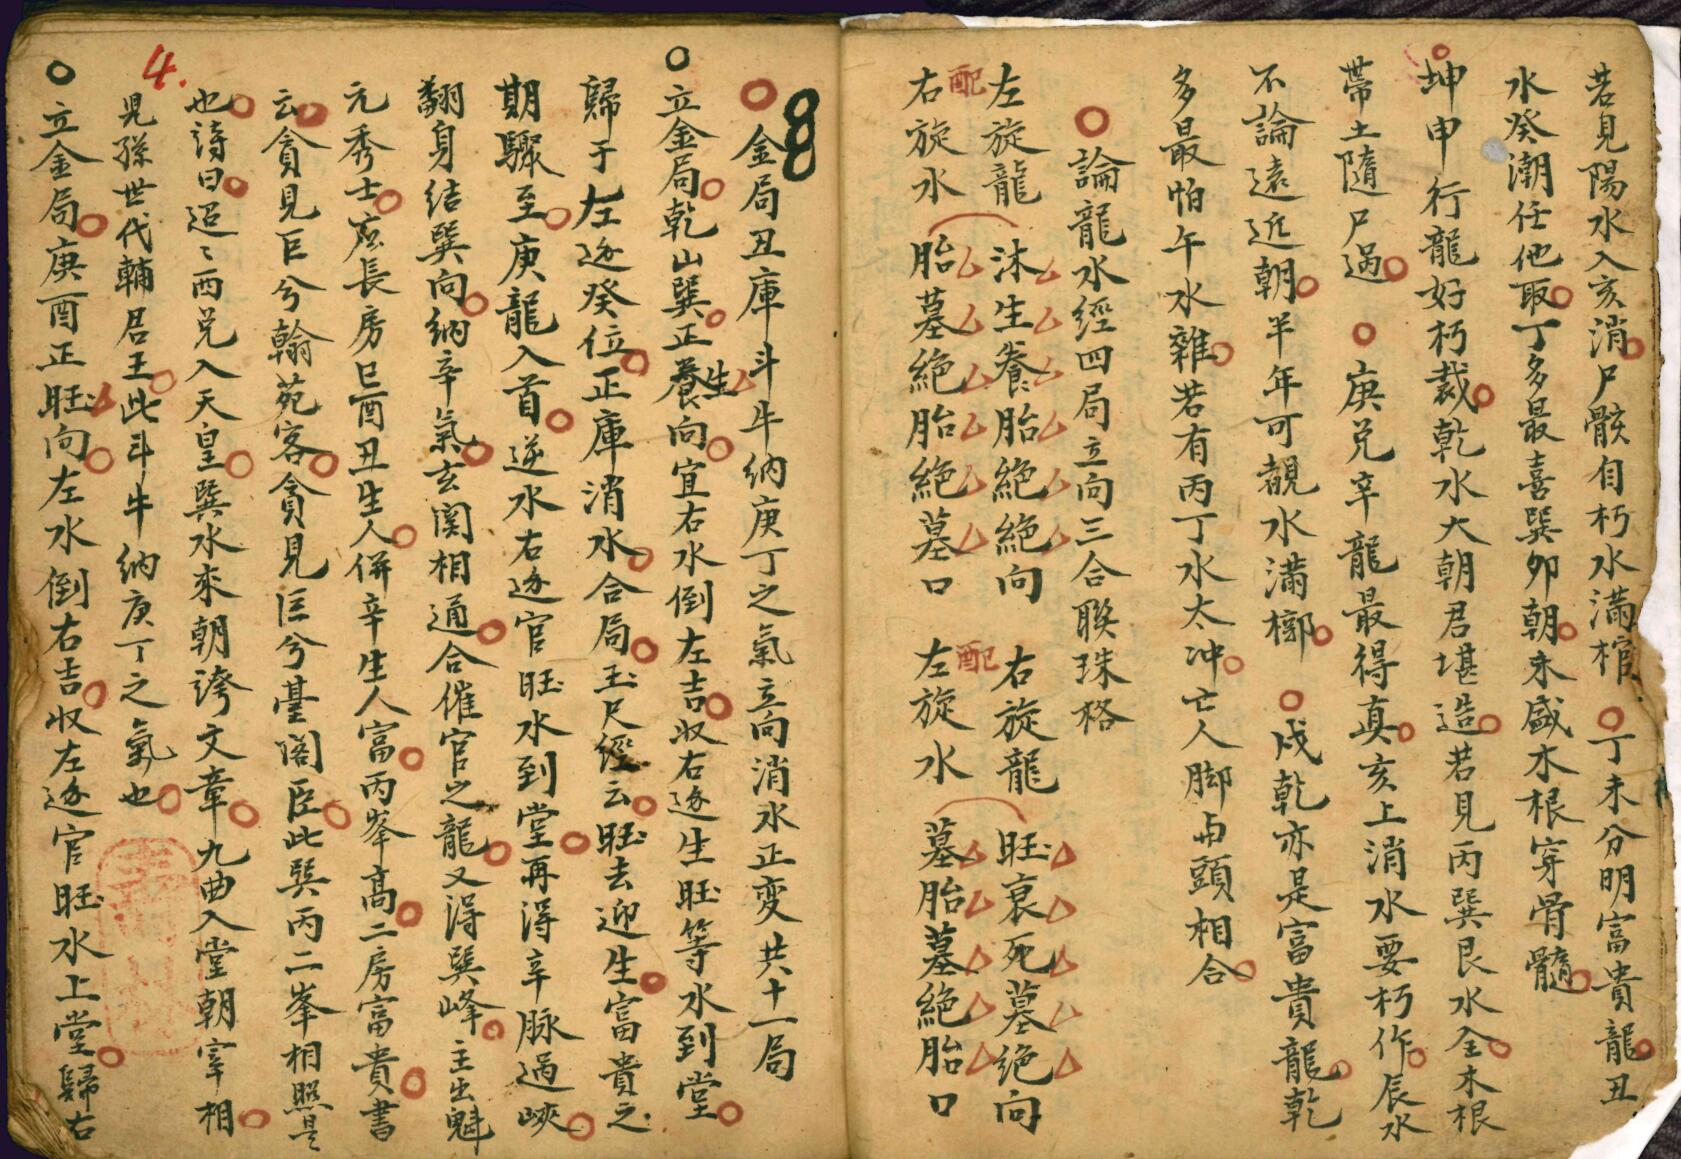 若見陽水入亥消尸骸自朽水滿棺丁未分明富貴龍丑
水癸潮任他取丁多最喜巽卯朝未盛木根穿骨髓
坤申行龍好朽裁乾水大朝君堪造若見丙巽艮水全木根
帶土隨尸過庚兌辛龍最得真亥上消水要朽作辰水
不論遠近朝半年可覩水滿槨戌乾亦是富貴龍乾
多最怕午水雜若有丙丁水太冲亡人脚与頭相合
論龍水經四局立向三合聯珠格
左旋龍沐生養胎絕向 右旋龍旺衰死墓绝向
配 配
右旋水胎墓絕胎絕墓口 左旋水墓胎墓絕胎口
8
金局丑庫斗牛納庚丁之氣立向消水正变共十一局
立金局乾山巽正養生向宜右水倒左吉收右逐生旺等水到堂
歸于左逐癸位正庫消水合局玉尺經云旺去迎生富貴之
期驟至庚龍入首逆水右逐官旺水到堂再得辛脉過峽
翻身結巽向納辛氣玄関相通合催官之龍又得巽峰主出魁
元秀士应長房巳酉丑生人併辛生人富丙峯高二房富貴書
云貪見巨兮翰苑客貪見巨兮臺閣臣此巽丙二峯相照是
也詩曰迢〻西兌入天皇巽水來朝誇文章九曲入堂朝宰相
4.
児孫世代輔君王此斗牛納庚丁之氣也
立金局庚酉正旺向左水倒右吉收左逐官旺水上堂歸右